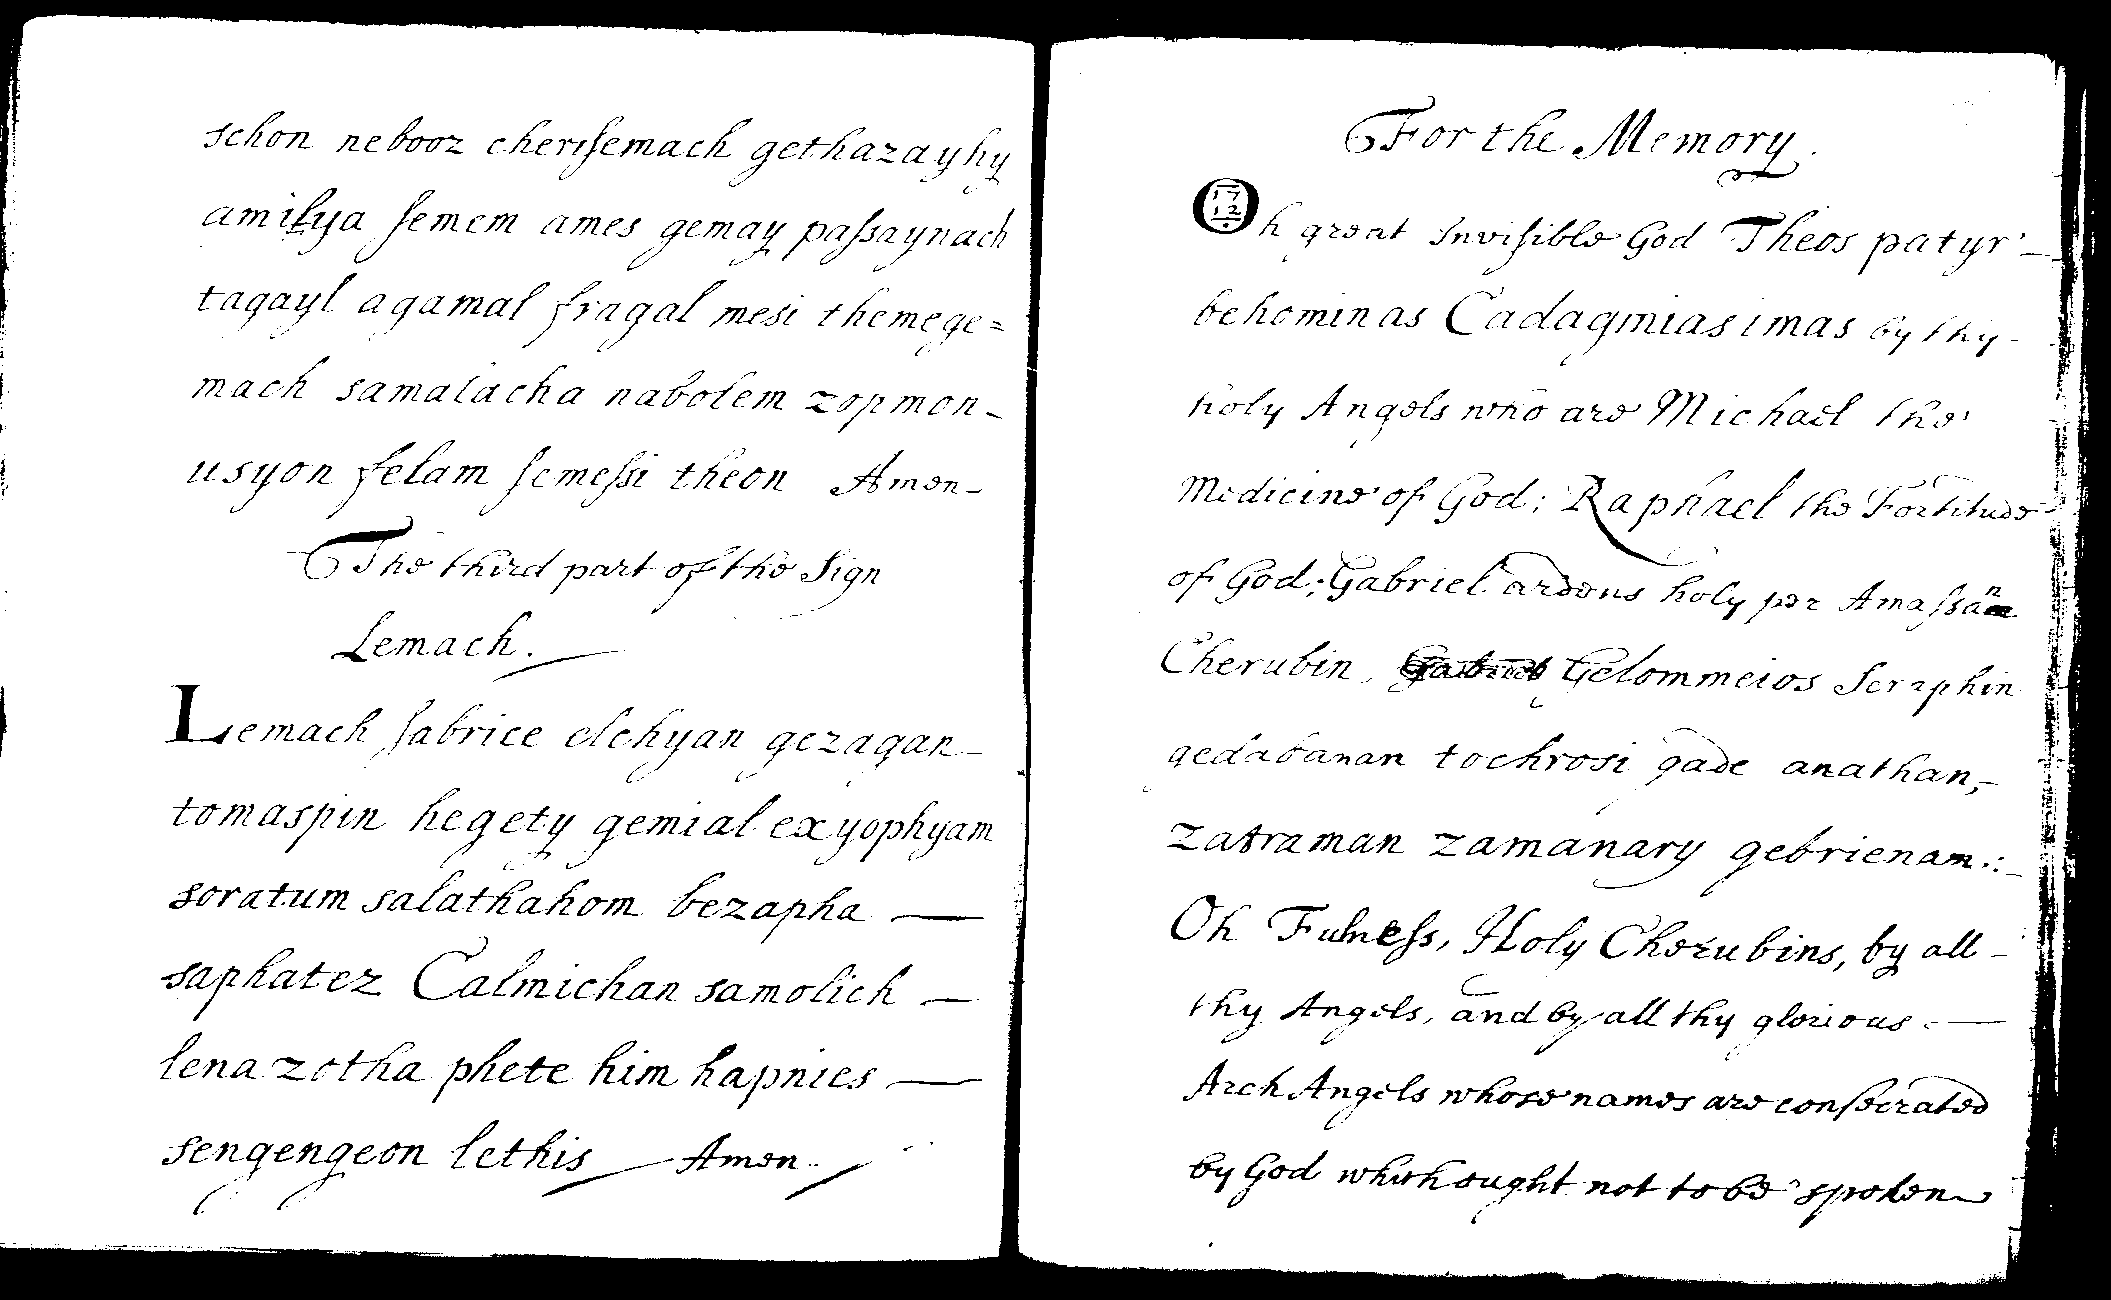 schon nebooz cherisemach gethazayhy
amilya semem ames gemay passaynach
tagayl agamal fragal mesi themege=
mach samalacha nabolem zopmon-
usyon felam semessi theon Amen-
The third part of the Sign
Lemach.
Lemach sabrice elchyan gezagan-
tomaspin hegety gemial exyophyam
soratum salathahom bezapha —
saphatez Calmichan samolich —
lena zotha phete him hapnies —
sengengeon lethis — Amen.
For the Memory.
17
12
Oh great Invisible God Theos patyr-
behominas Cadagmias imas by thy-
holy Angels who are Michael the
Medicine of God; Raphael the Fortitude
of God; Gabriel ardens holy per Amassan
Cherubin, Gabriel Gelommeios Seraphin
gedabanan tochrosi gade anathan,-
zatraman zamanary gebrienam.:-
Oh Fulness, Holy Cherubins, by all-
thy Angels, and by all thy glorious —
Arch Angels whose names are consecrated
by God which ought not to be spoken